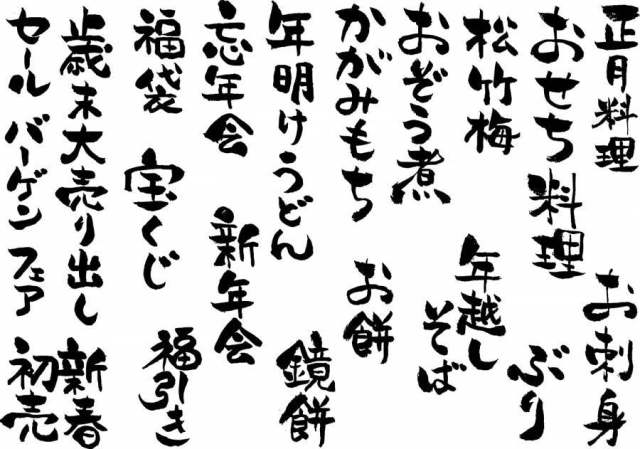 正月料理
お刺身
おせち料理
ぶり
松竹梅
年越し
そば
おぞう煮
かがみもち
お餅
年明けうどん
鏡餅
忘年会
新年会
福袋
宝くじ
福引き
歳末大売り出し
新春
初売
セール
バーゲン
フェア